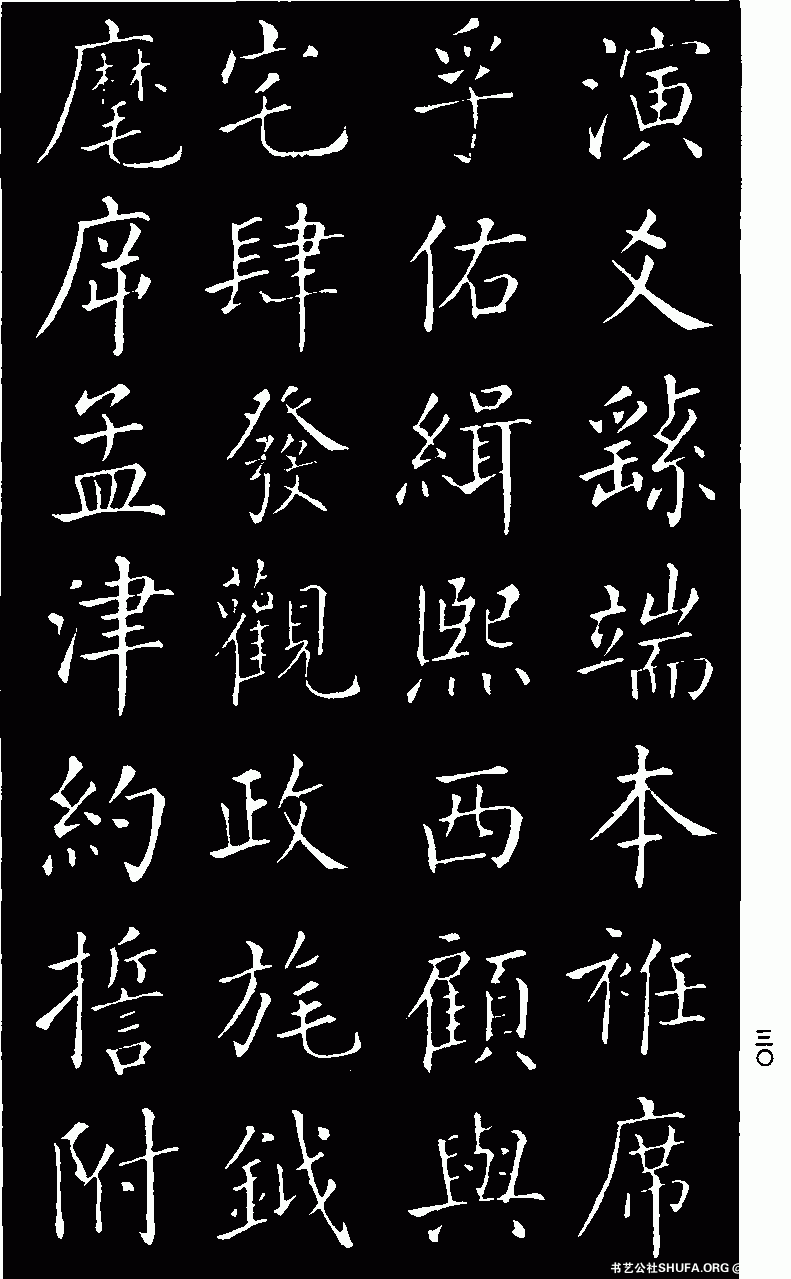 演爻繇端本袵席
孚佑緝熙西顧與
宅肆發觀政旄鉞
麾斥孟津約誓附
三〇
书艺公社SHUFA.ORG